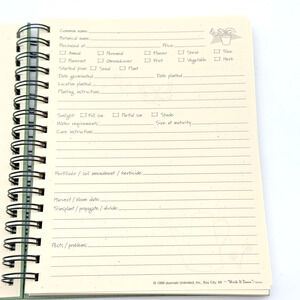 Common name
Botanical name
Purchased at Price
Annual Perennial Flower Shrub Vine
Evergreen Groundcover Fruit Vegetable Herb
Started from: Seed Plant
Date germinated Date planted
Location planted
Planting instructions
Sunlight: Full sun Partial sun Shade
Water requirements Size at maturity
Care instructions
Fertilizer / soil amendment / herbicide
Harvest / bloom date
Transplant / propagate / divide
Pests / problems
© 1998 Journals Unlimited, Inc., Bay City, MI "Write it Down"